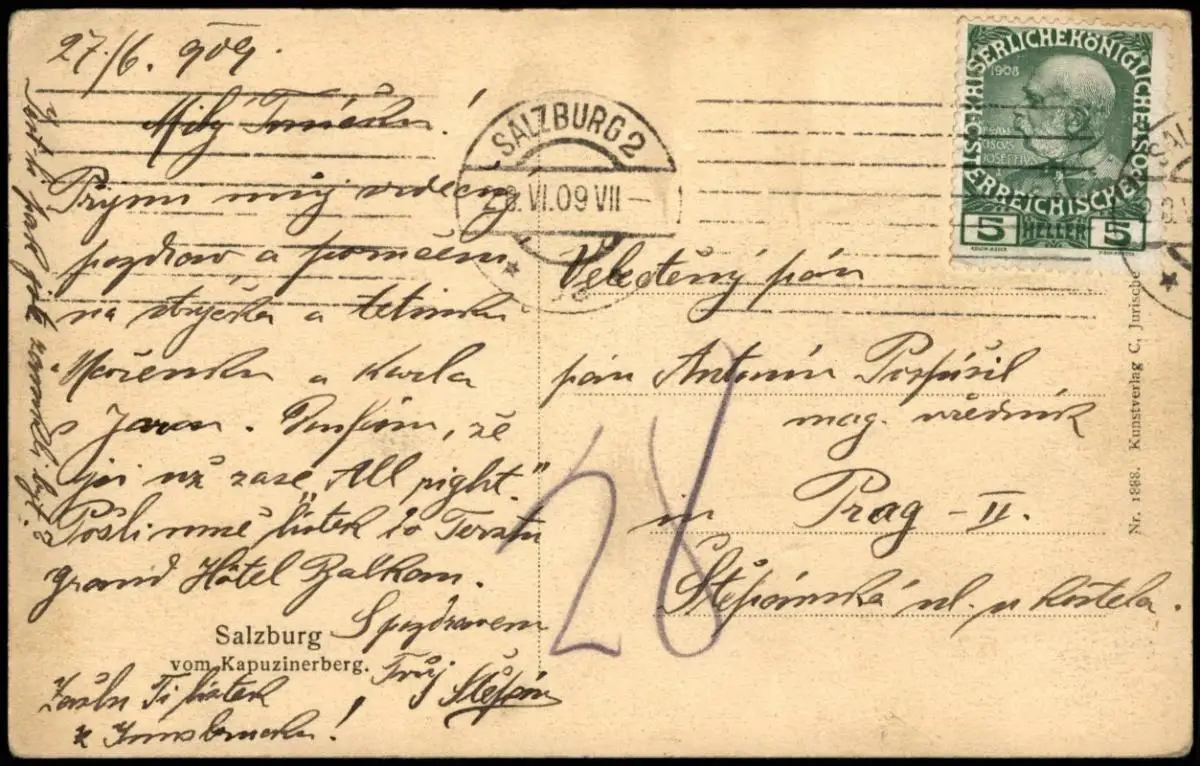 27./6. 909.
Milý Toníčku!
Přijmi můj srdečný
pozdrav a
na strýčka a tetinku
Mařenku a Karla
s Jarou. Doufám, že
jsi už zase All right."
Pošli mně lístek do Terstu
grand Hôtel Balkan.
S pozdravem
Tvůj Štěpán
Zašlu Ti lístek
z Innsbrucku!
jak jsi
Salzburg
vom Kapuzinerberg.
SALZBURG 2
28.VI.09 VII
KAISERLICHE KÖNIGLICHE ÖSTERREICHISCHE POST
1908
5 HELLER 5
Velectěný pán
pán Antonín Pospíšil
mag. úředník
in Prag - II.
Štěpánská ul. u kostela.
28
Nr. 1888. Kunstverlag C. Jurische